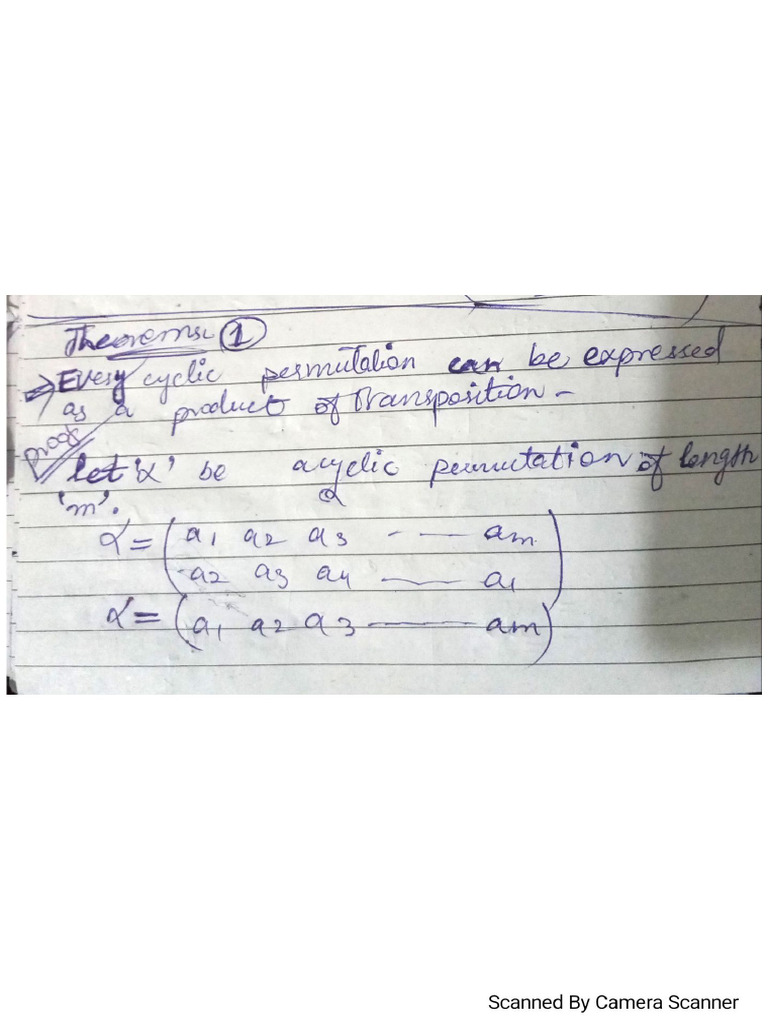 Theorems: 1
→ Every cyclic permutation can be expressed
as a product of Transposition -
proof
let 'α' be a cyclic permutation of length
'm'.
α = ( a1 a2 a3 - — am
a2 a3 a4 — a1 )
α = ( a1 a2 a3 — am )
Scanned By Camera Scanner